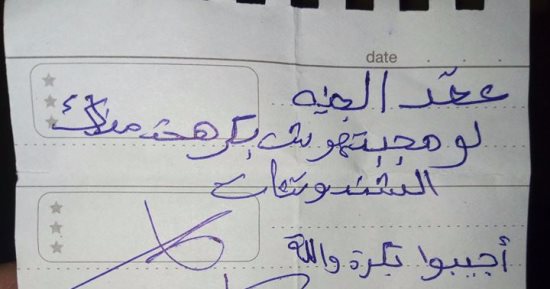 date
عقد الجنيه
لو مجبتهوش بكر هخد منك
الشندوتشات
أجيبوا بكرة والله